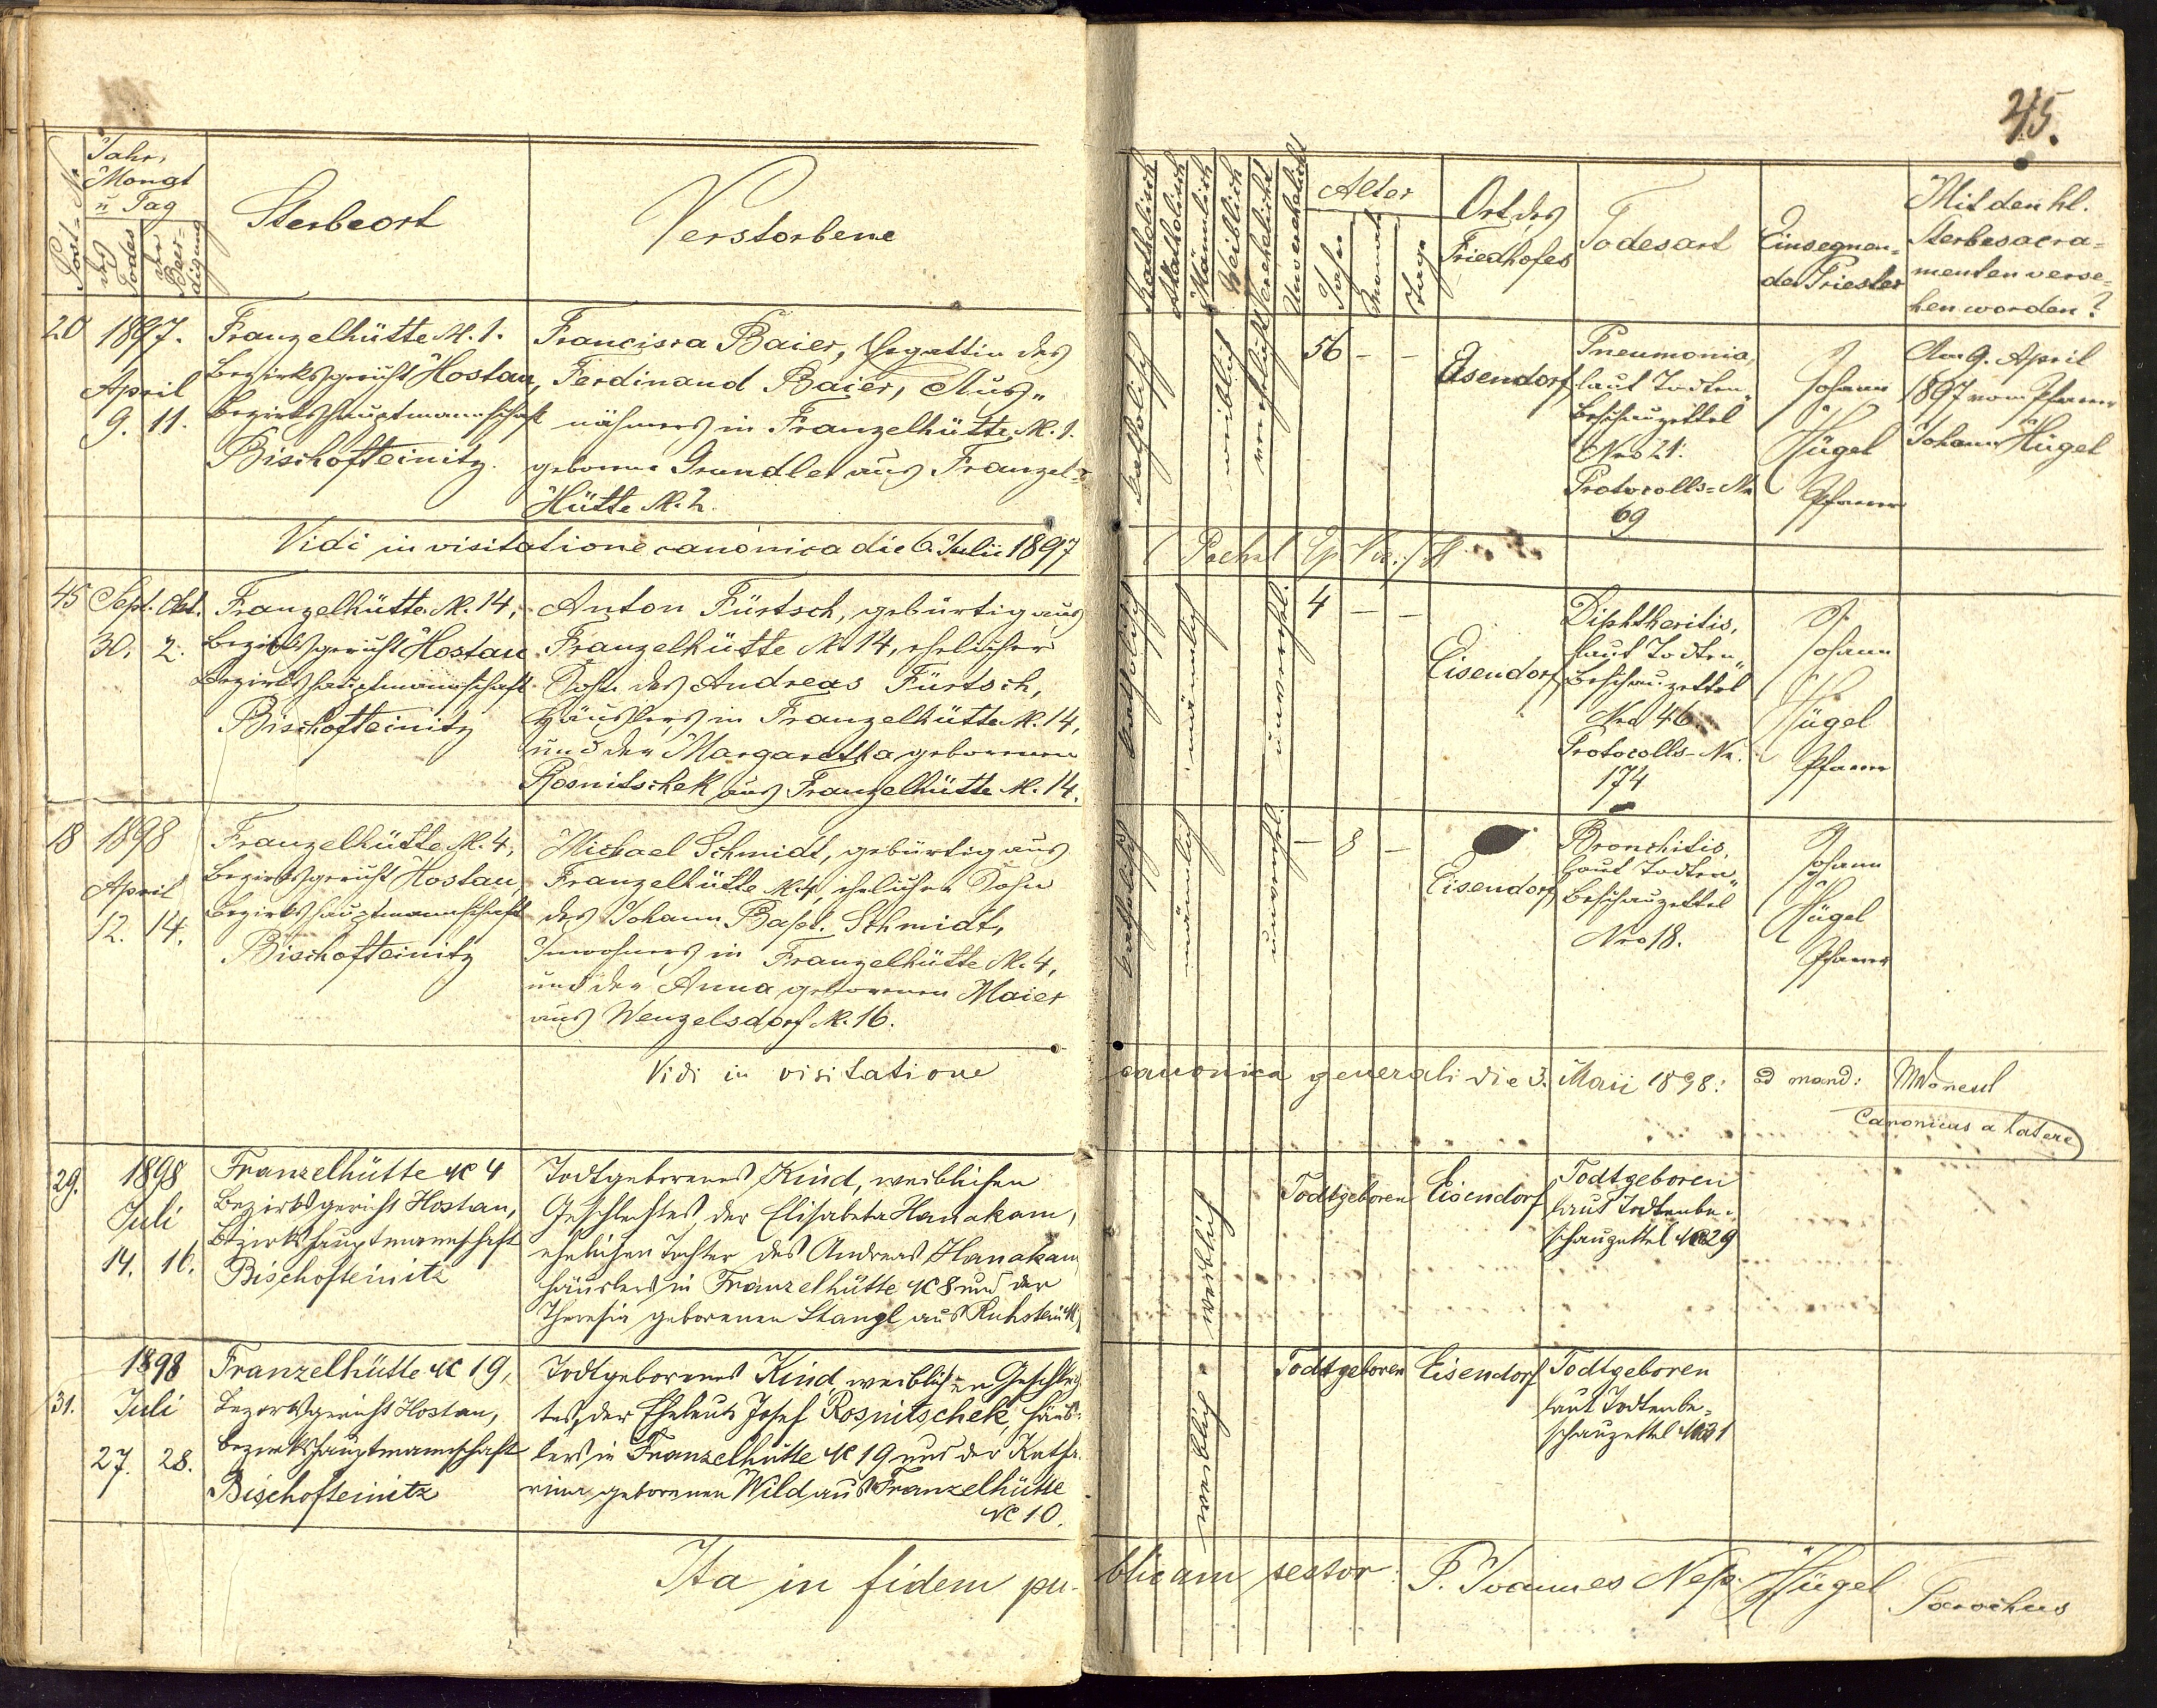 45.
Post-№
Jahr,
Monat
u Tag
des
Todes
der
Beer-
digung
Sterbeort
Verstorbene
Katholisch
Akatholisch
Männlich
Weiblich
Verehelicht
Unverehelicht
Alter
Jahre
Monate
Tage
Ort des
Friedhofes
Todesart
Einsegnen-
der Priester
Mit den hl.
Sterbesacra-
menten verse-
hen worden?
20
1897.
April
9. 11.
Franzelhütte №. 1.
Bezirksgericht Hostau,
Bezirkshauptmannschaft
Bischofteinitz.
Francisca Baier, Ehegattin des
Ferdinand Baier, Aus-
nähmers in Franzelhütte, №. 1.
geborene Grundler aus Franzel-
Hütte №. 2.
katholisch
weiblich
verehelicht
56 – –
Eisendorf
Pneumonia,
laut Todten-
beschauzettel
Nro 21.
Protocolls-№
69
P.
Johann
N.
Hügel
Pfarrer
Am 9. April
1897 vom Pfarrer
Johann N. Hügel
Vidi in visitatione canonica die 6. Julii 1897
45
Sept. Okt.
30. 2.
Franzelhütte №. 14,
Bezirksgericht Hostau
Bezirkshauptmannschaft
Bischofteinitz
Anton Fürtsch, gebürtig aus
Franzelhütte №. 14, ehelicher
Sohn des Andreas Fürtsch,
Häuslers in Franzelhütte №. 14,
und der Margaretha geborenen
Rosnitschek aus Franzelhütte №. 14.
katholisch
männlich
unverehel.
4 – –
Eisendorf
Diphtheritis,
laut Todten-
beschauzettel
Nro 46.
Protocolls-№.
174
P.
Johann
N.
Hügel
Pfarrer
18
1898
April
12. 14.
Franzelhütte №. 4,
Bezirksgericht Hostau,
Bezirkshauptmannschaft
Bischofteinitz
Michael Schmidt, gebürtig aus
Franzelhütte №. 4, ehelicher Sohn
des Johann Bapt. Schmidt,
Inwohners in Franzelhütte №. 4,
und der Anna geborenen Maier
aus Wenzelsdorf №. 16.
katholisch
männlich
unverehel.
– 8 –
Eisendorf
Bronchitis,
laut Todten-
beschauzettel
Nro 18.
P.
Johann
N.
Hügel
Pfarrer
Vidi in visitatione canonica generali die 3. Maii 1898: ad mand:
Canonicus a latere
29.
1898
Juli
14. 16.
Franzelhütte № 4
Bezirksgericht Hostau,
Bezirkshauptmannschaft
Bischofteinitz
Todtgeborenes Kind, weiblichen
Geschlechtes, der Elisabeta Hanakam,
ehelichen Tochter des Andreas Hanakam
Häuslers in Franzelhütte № 8 und der
Theresia geborenen Stangl aus
weiblich
Todtgeboren
Eisendorf
Todtgeboren
laut Todtenbe-
schauzettel № 29
31.
1898
Juli
27. 28.
Franzelhütte № 19,
Bezirksgericht Hostau,
Bezirkshauptmannschaft
Bischofteinitz
Todtgeborenes Kind, weiblichen Geschlech-
tes, der Eheleute Josef Rosnitschek, Häus-
lers in Franzelhütte № 19 und der Katha-
rina geborenen Wild aus Franzelhütte
№ 10.
weiblich
Todtgeboren
Eisendorf
Todtgeboren
laut Todtenbe-
schauzettel № 31
Ita in fidem pu- blicam testor: P. Joannes Nep. Hügel Parochus